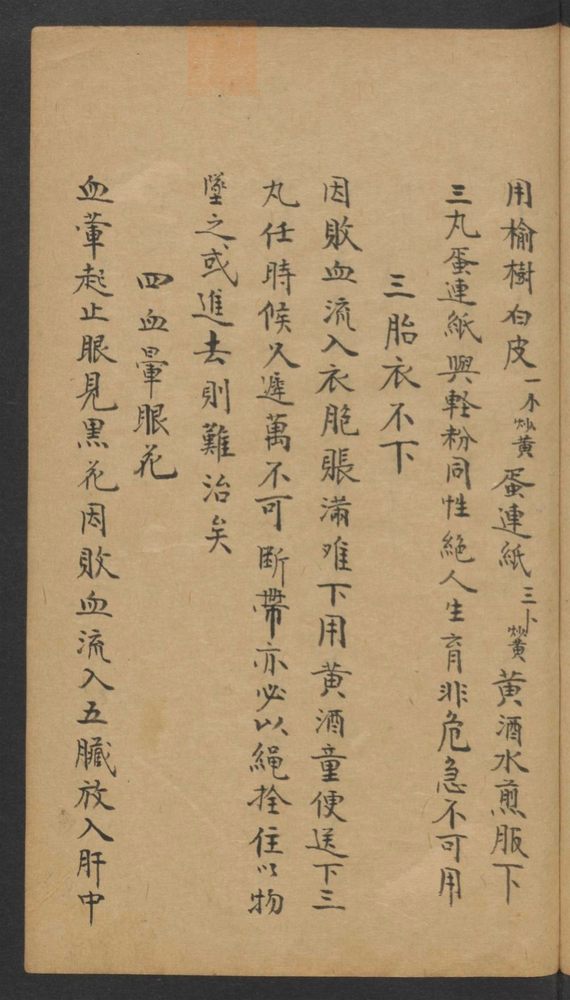 用榆樹白皮一不炒黄蛋連紙三卜炒黄黄酒水煎服下
三丸蛋連紙與軽粉同性絶人生育非危急不可用
三胎衣不下
因敗血流入衣胞脹滿唯下用黄酒童便送下三
丸任時候久遲萬不可断帶亦必以繩拴住以物
墜之或進去則難治矣
四血暈眼花
血暈起止眼見黒花因敗血流入五臟放入肝中